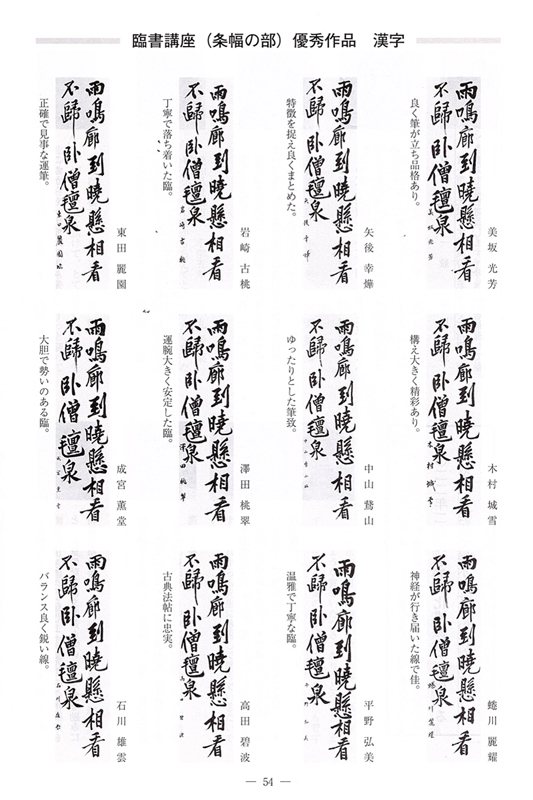 臨書講座（条幅の部）優秀作品　漢字
美坂　光芳
雨鳴廊到曉懸相看
不歸臥僧氊泉
良く筆が立ち品格あり。
矢後　幸燁
雨鳴廊到曉懸相看
不歸臥僧氊泉
特徴を捉え良くまとめた。
岩崎　古桃
雨鳴廊到曉懸相看
不歸臥僧氊泉
丁寧で落ち着いた臨。
東田　麗園
雨鳴廊到曉懸相看
不歸臥僧氊泉
正確で見事な運筆。
木村　城雪
雨鳴廊到曉懸相看
不歸臥僧氊泉
構え大きく精彩あり。
中山　鵞山
雨鳴廊到曉懸相看
不歸臥僧氊泉
ゆったりとした筆致。
澤田　桃翠
雨鳴廊到曉懸相看
不歸臥僧氊泉
運腕大きく安定した臨。
成宮　薫堂
雨鳴廊到曉懸相看
不歸臥僧氊泉
大胆で勢いのある臨。
蜷川　麗耀
雨鳴廊到曉懸相看
不歸臥僧氊泉
神経が行き届いた線で佳。
平野　弘美
雨鳴廊到曉懸相看
不歸臥僧氊泉
温雅で丁寧な臨。
高田　碧波
雨鳴廊到曉懸相看
不歸臥僧氊泉
古典法帖に忠実。
石川　雄雲
雨鳴廊到曉懸相看
不歸臥僧氊泉
バランス良く鋭い線。
— 54 —